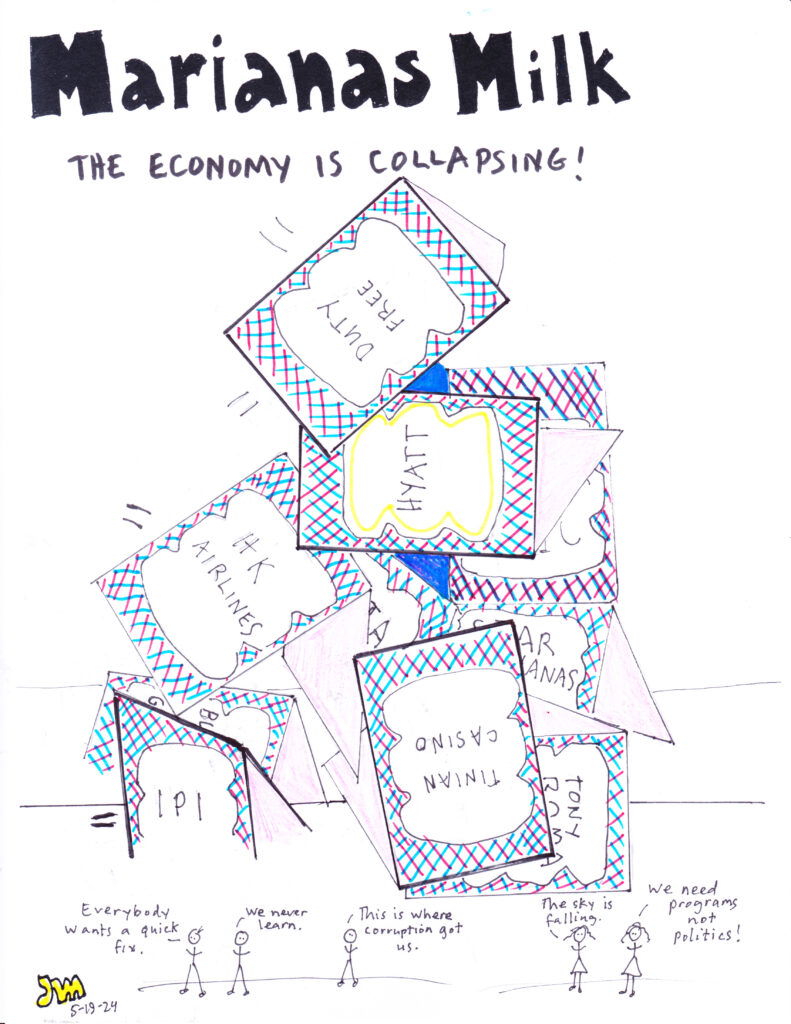 Marianas Milk
THE ECONOMY IS COLLAPSING!
DUTY
FREE
HYATT
HK
AIRLINES
AR
ANAS
IPI
TINIAN
CASINO
TONY
ROMA
Everybody
wants a quick
fix.
We never
learn.
This is where
corruption got
us.
The sky is
falling.
We need
programs
not
politics!
JM
5-19-24